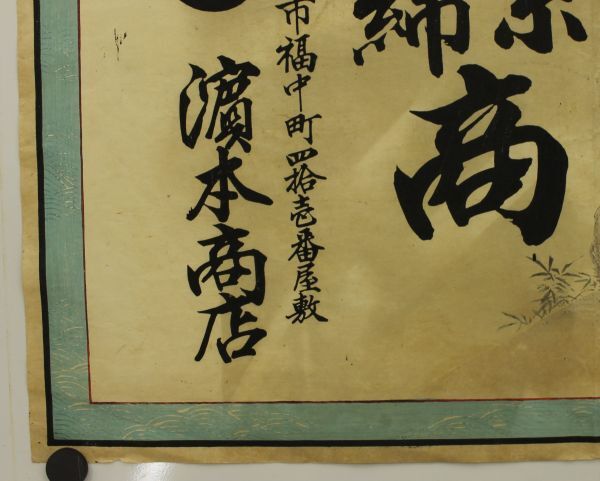 綿糸商
市福中町四拾壱番屋敷
濵本商店